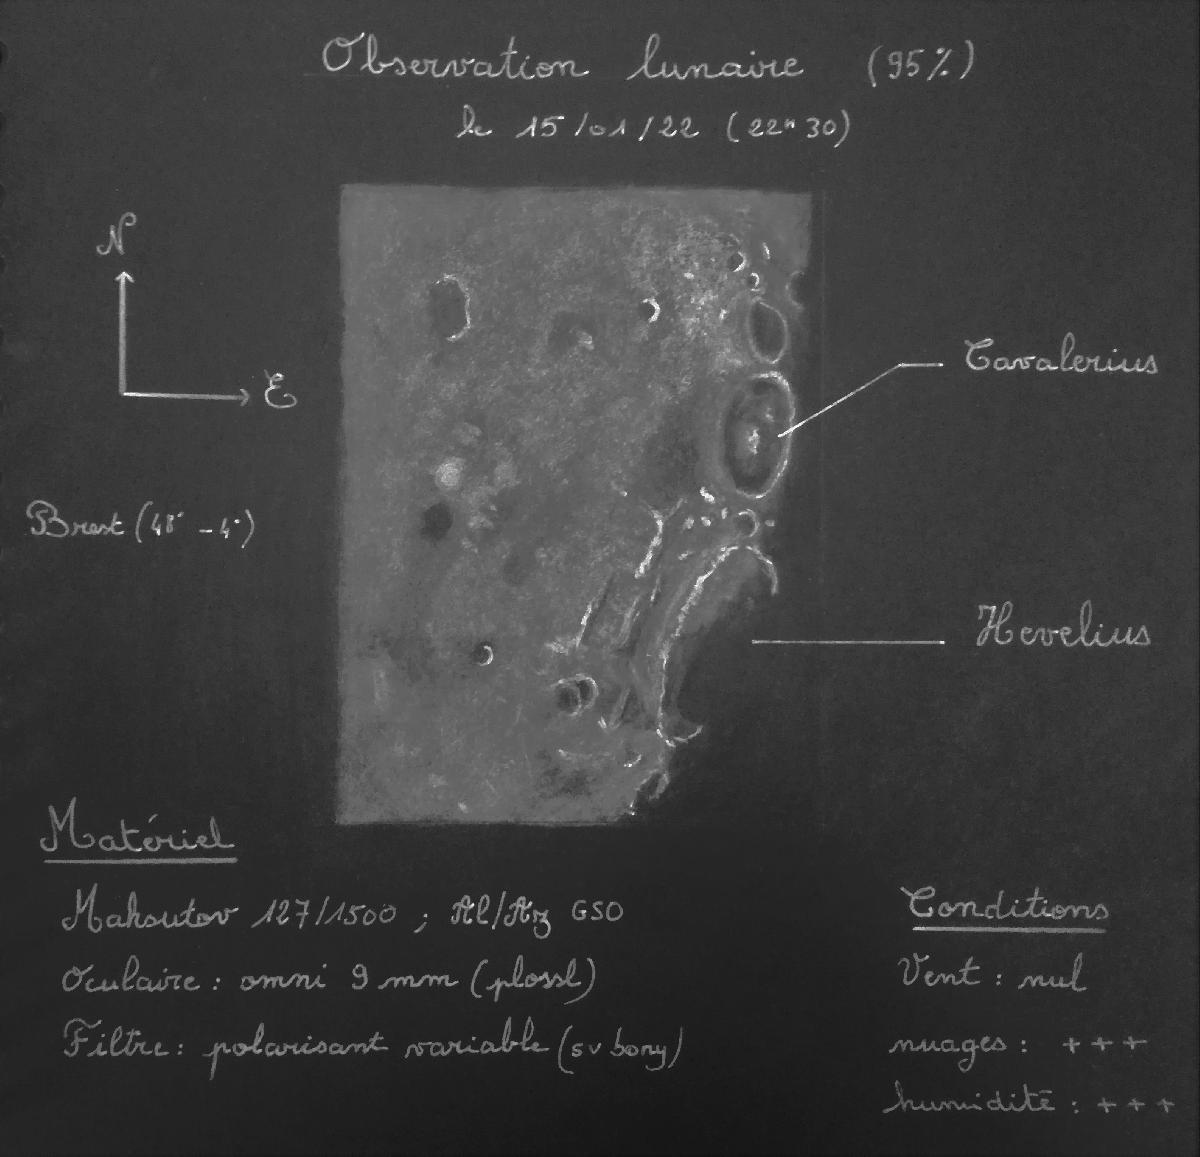 Observation lunaire (95%)
le 15/01/22 (22h30)
N
E
Cavalerius
Brest (48° -4°)
Hevelius
Matériel
Maksutov 127/1500 ; Al/Az GSO
Oculaire : omni 9 mm (plossl)
Filtre : polarisant variable (sv bony)
Conditions
Vent : nul
nuages : +++
humidité : +++